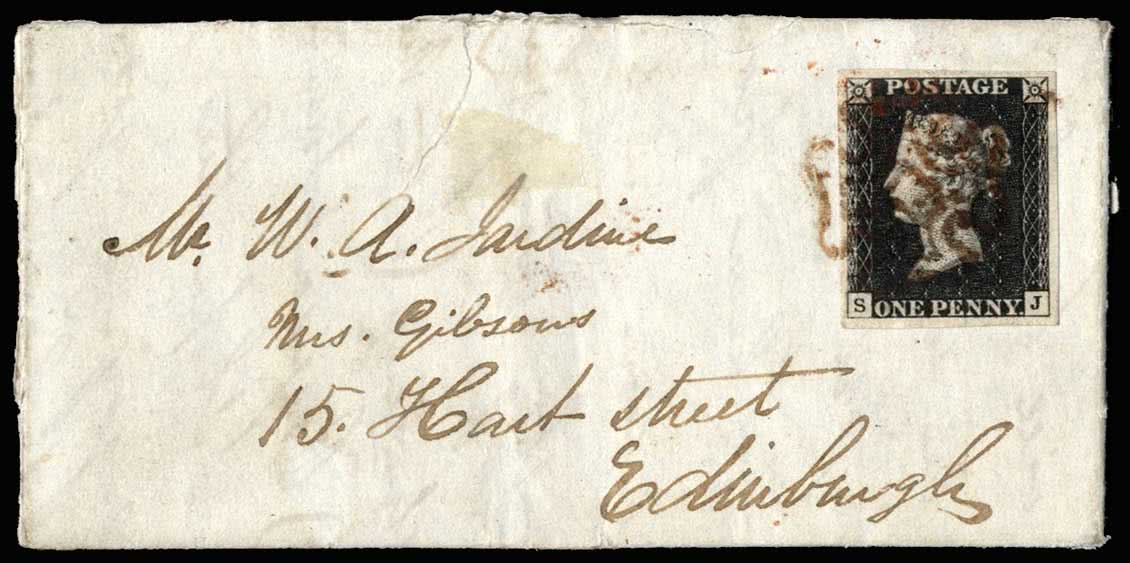 POSTAGE
S ONE PENNY. J
Mr. W. A. Jardine
Mrs. Gibsons
15. Hart street
Edinburgh